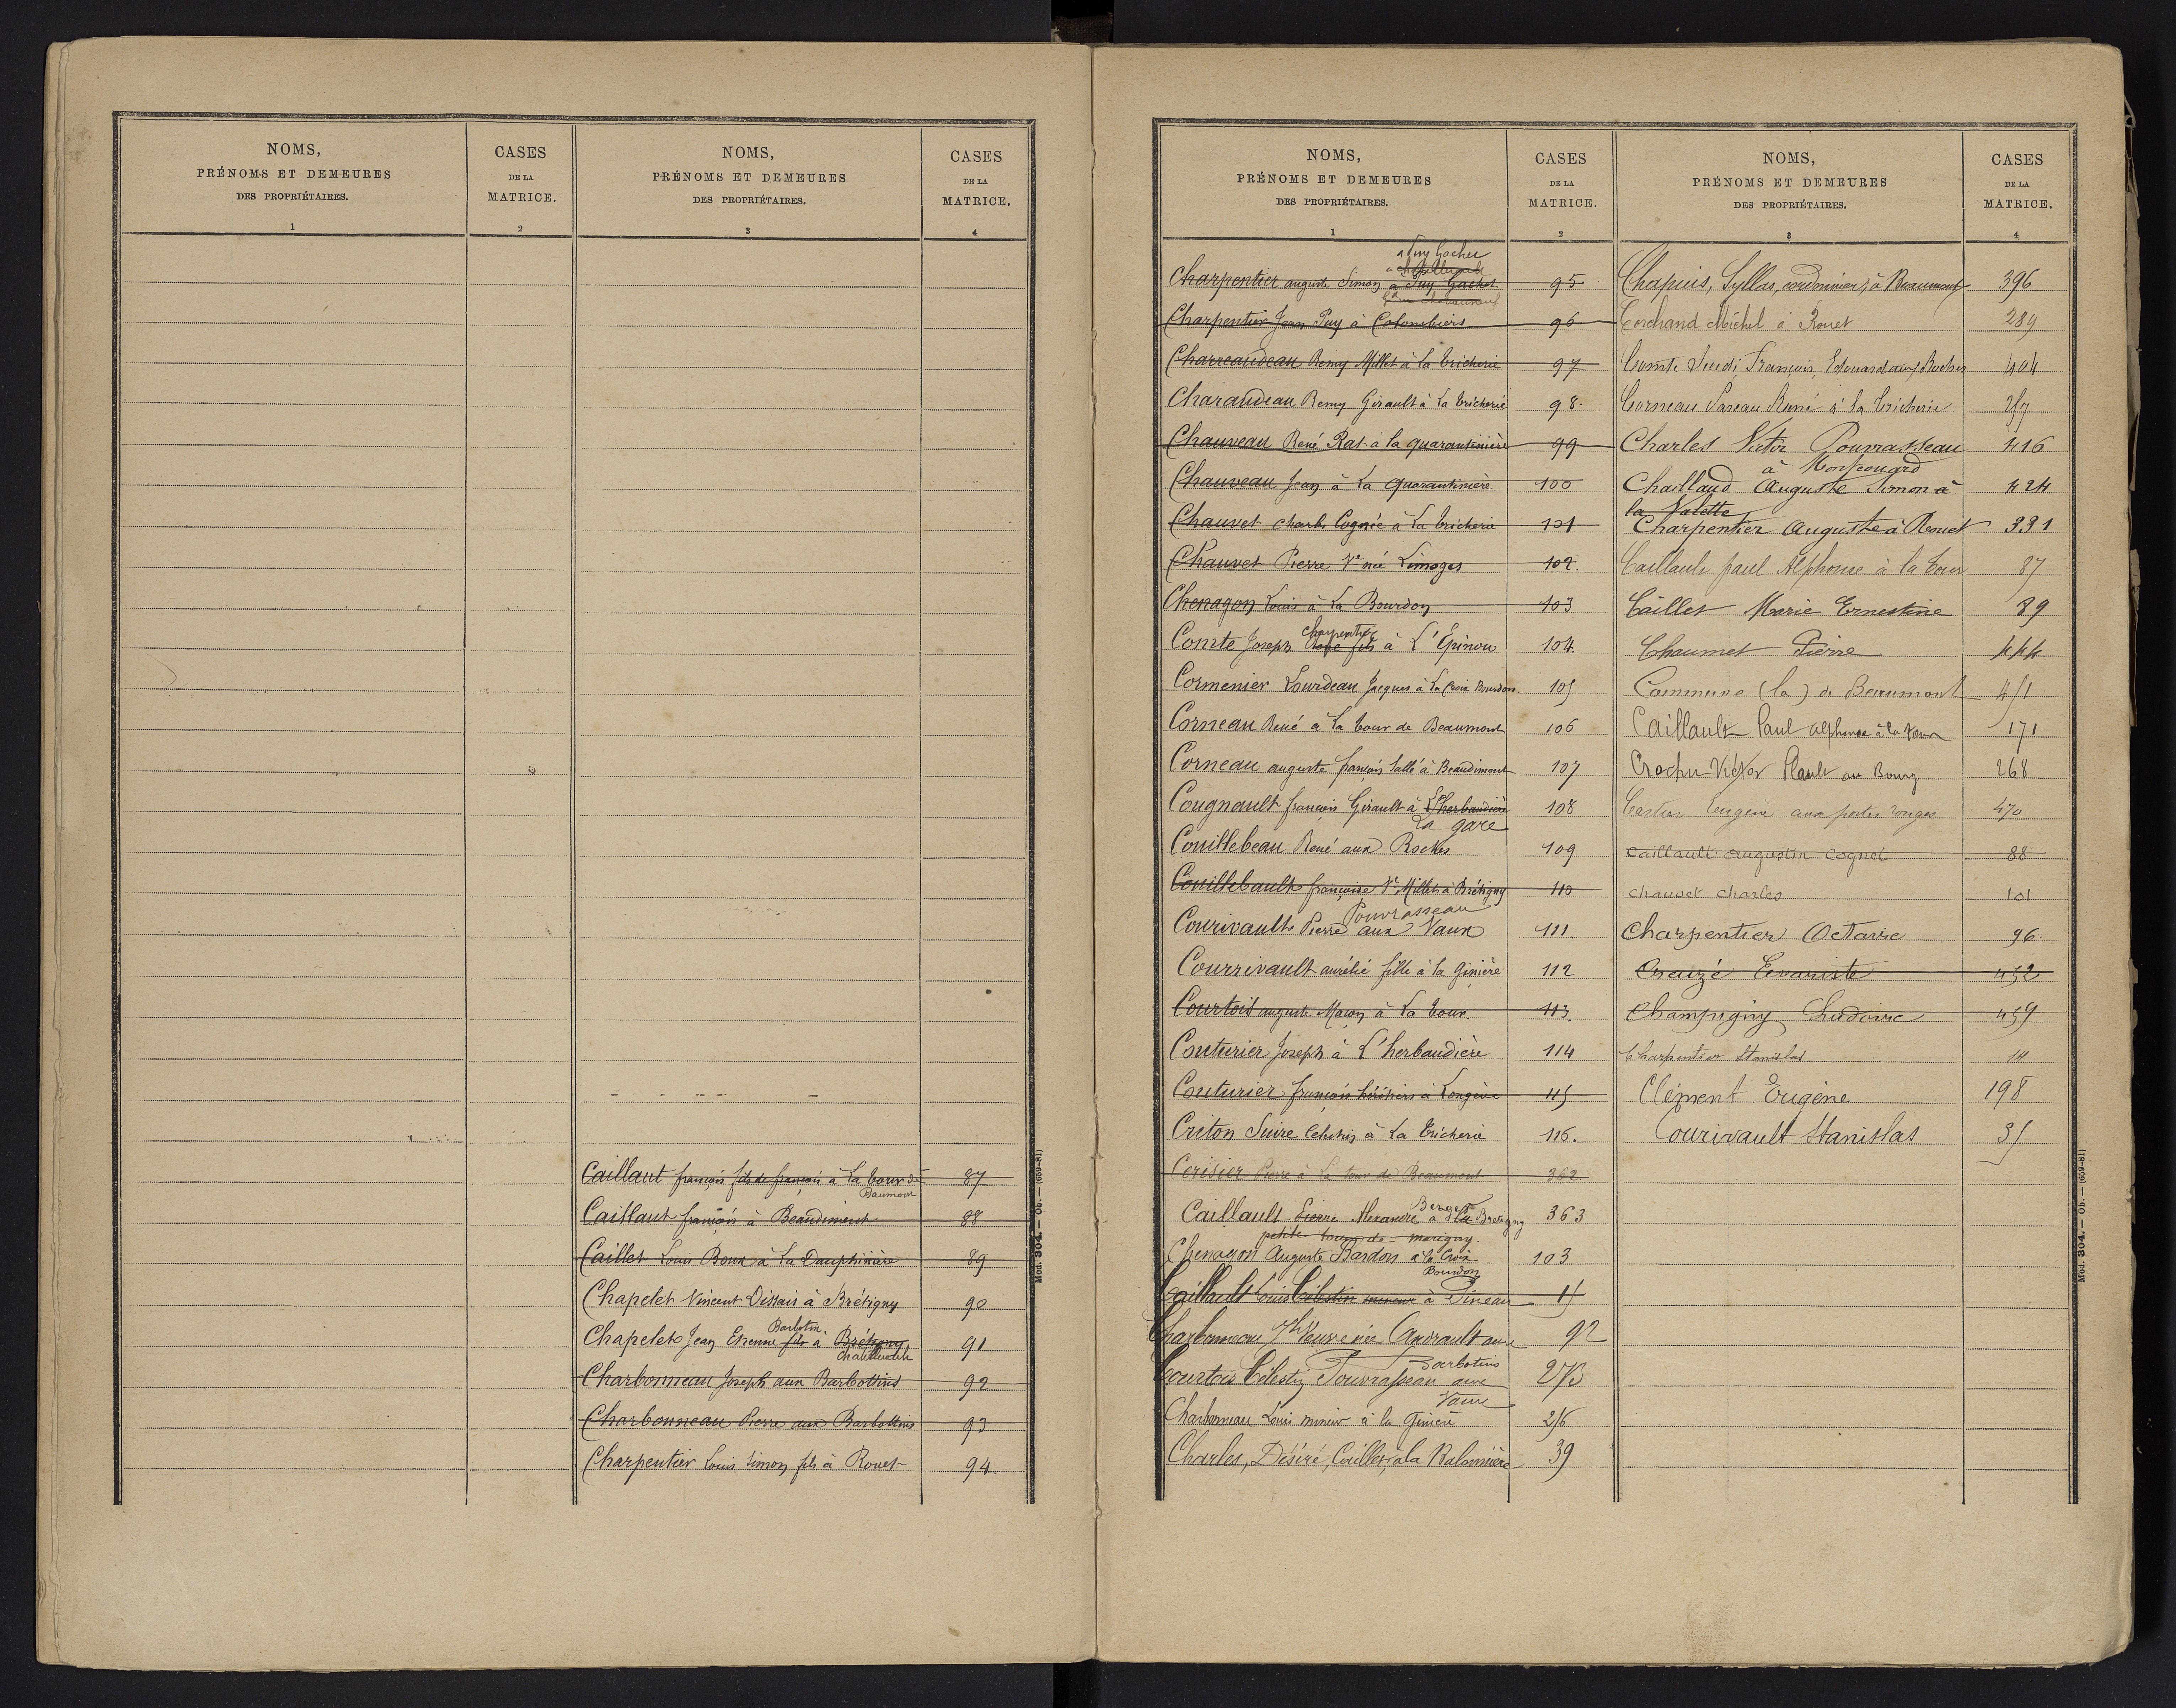 NOMS,
PRÉNOMS ET DEMEURES
DES PROPRIÉTAIRES.
1
CASES
DE LA
MATRICE.
2
NOMS,
PRÉNOMS ET DEMEURES
DES PROPRIÉTAIRES.
3
CASES
DE LA
MATRICE.
4
Caillaut françois fils de françois à La tour de 87
Baumont
Caillaut françois à Beaudiment 88
Caillet Louis Roux à La Dauphinière 89
Chapelet Vincent Dissais à Brétigny 90
Barbotin
Chapelet Jean Etienne fils à Brétigny 91
Chatellerault
Charbonneau Joseph aux Barbottins 92
Charbonneau Pierre aux Barbottins 93
Charpentier Louis Simon fils à Rouet 94
Mod. 304. — Ob. — (659-81)
NOMS,
PRÉNOMS ET DEMEURES
DES PROPRIÉTAIRES.
1
CASES
DE LA
MATRICE.
2
NOMS,
PRÉNOMS ET DEMEURES
DES PROPRIÉTAIRES.
3
CASES
DE LA
MATRICE.
4
à Puy Gachet
à chatellerault
Charpentier auguste Simon à Puy Gachet 95
Charpentier Jean Puy à Colombiers 96
Charreaudeau Remy Millet à La tricherie 97
Charaudeau Remy Girault à La tricherie 98
Chauveau René Rat à la quarantinière 99
Chauveau Jean à La quarantinière 100
Chauvet charles Cognée à La tricherie 101
Chauvet Pierre Ve née Limoges 102
Chenagon Louis à La Bourdon 103
charpentier
Comte Joseph fils à L'Epinou 104
Cormenier Lourdeau Jacques à La Croix Bourdon 105
Corneau René à La tour de Beaumont 106
Corneau auguste françois Sallé à Beaudiment 107
Cougnault françois Girault à L'Harbaudière 108
La gare
Couillebeau René aux Roches 109
Couillebault françoise Ve Millet à Brétigny 110
Pouvrasseau
Courivault Pierre aux Vaux 111
Courrivault aurélie fille à la Ginière 112
Courtois auguste Maçon à La tour 113
Couturier Joseph à L'herbaudière 114
Couturier françois héritiers à Longève 115
Criton Suire à La tricherie 116
Cerisier Pierre à La tour de Beaumont 362
Caillault Pierre Alexandre à Bretigny 363
petite tour de marigny
Chenagon Auguste Bardon à la Croix 103
Bourdon
Caillault Louis Célestin mineur à Pineau 15
Charbonneau Jh Veuve née Audrault aux 92
Barbotins
Courtois Célestin Pouvrasseau aux 273
Vaux
Charbonneau Louis mineur à la Ginière 256
Charles, Désiré, Caillet, à la Ralonnière 39
Chapuis, Syllas, cordonnier, à Beaumont 396
Corchand Michel à Rouet 289
Comte François, Edouard aux Roches 404
Corneau Pareau René à la tricherie 257
Charles Victor Pouvrasseau 416
à Monfcouard
Chaillaud Auguste Simon à 424
la Valette
Charpentier Auguste à Rouet 331
Caillault paul Alphonse à la tour 87
Caillet Marie Ernestine 89
Chaumet Pierre 444
Commune (la) de Beaumont 451
Caillault Paul alphonse à la tour 171
Crochu Victor Plault au Bourg 268
Cartier Eugène aux portes rouges 470
Caillault augustin cognet 88
chauvet charles 101
Charpentier Octavie 96
Creuzé Evariste 452
Champigny Ludovic 459
Charpentier Stanislas 14
Clément Eugène 198
Courivault Stanislas 35
Mod. 304. — Ob. — (659-81)